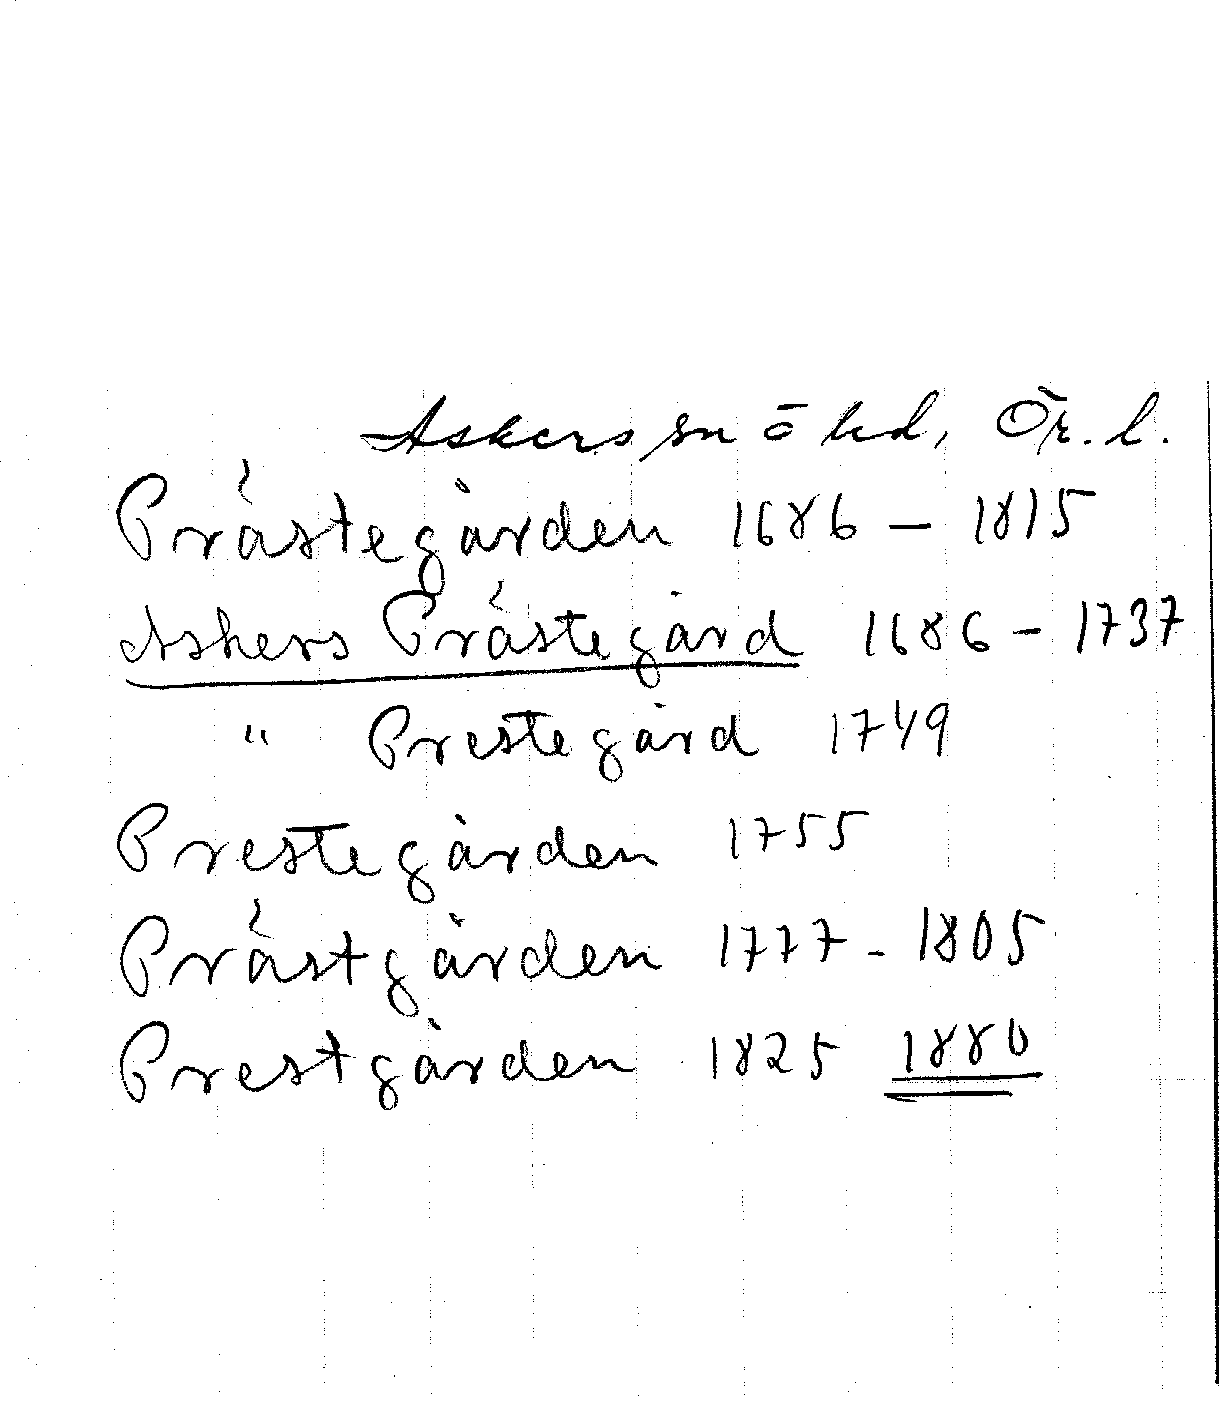 Askers sn ö hd, Ör. l.
Prästegården 1686 – 1815
Askers Prästegård 1686 – 1737
" Prestegård 1749
Prestegården 1755
Prästgården 1777 - 1805
Prestgården 1825 1880